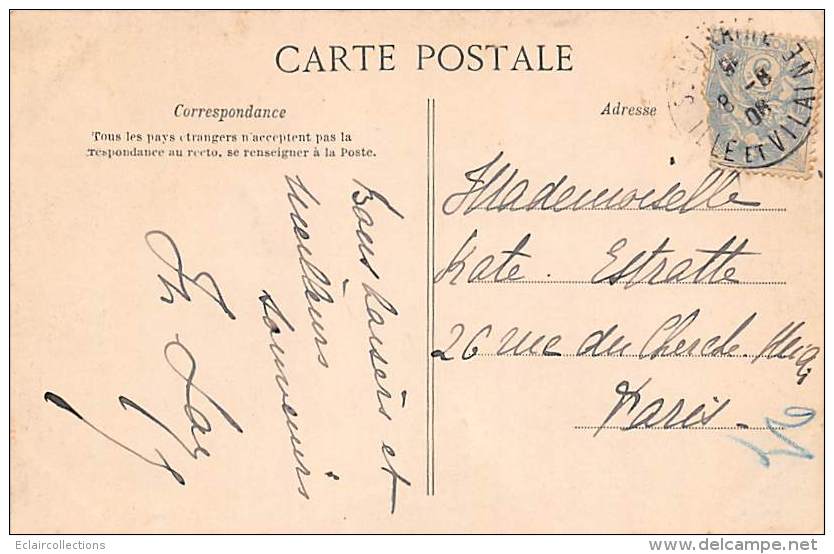 CARTE POSTALE
Correspondance
Tous les pays etrangers n'acceptent pas la
respondance au recto, se renseigner à la Poste.
Adresse
ILLE ET VILAINE
8 -8
08
Bons baisers et
meilleurs
souvenirs
Mademoiselle
Kate. Estratte
26 rue du Cherche Midi
Paris.
Eclaircollections
www.delcampe.net